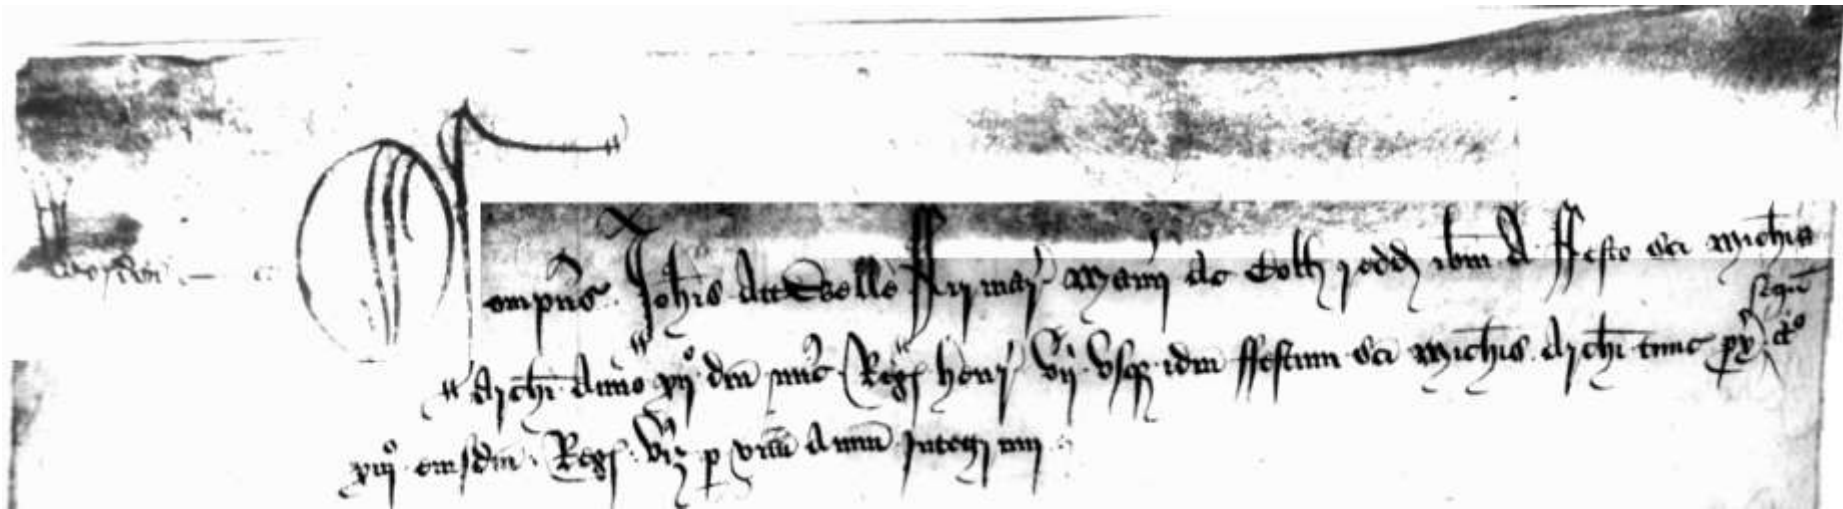 Compus Johis atte Welle Firmar Manii de Colh redd ibm a ffesto sci Michis
Archi anno xij dni nuc Regs henr vij usq idm ffestum sci Michis Archi tunc px sequ
xiij eiusdm Regs vij p unu annu integrum